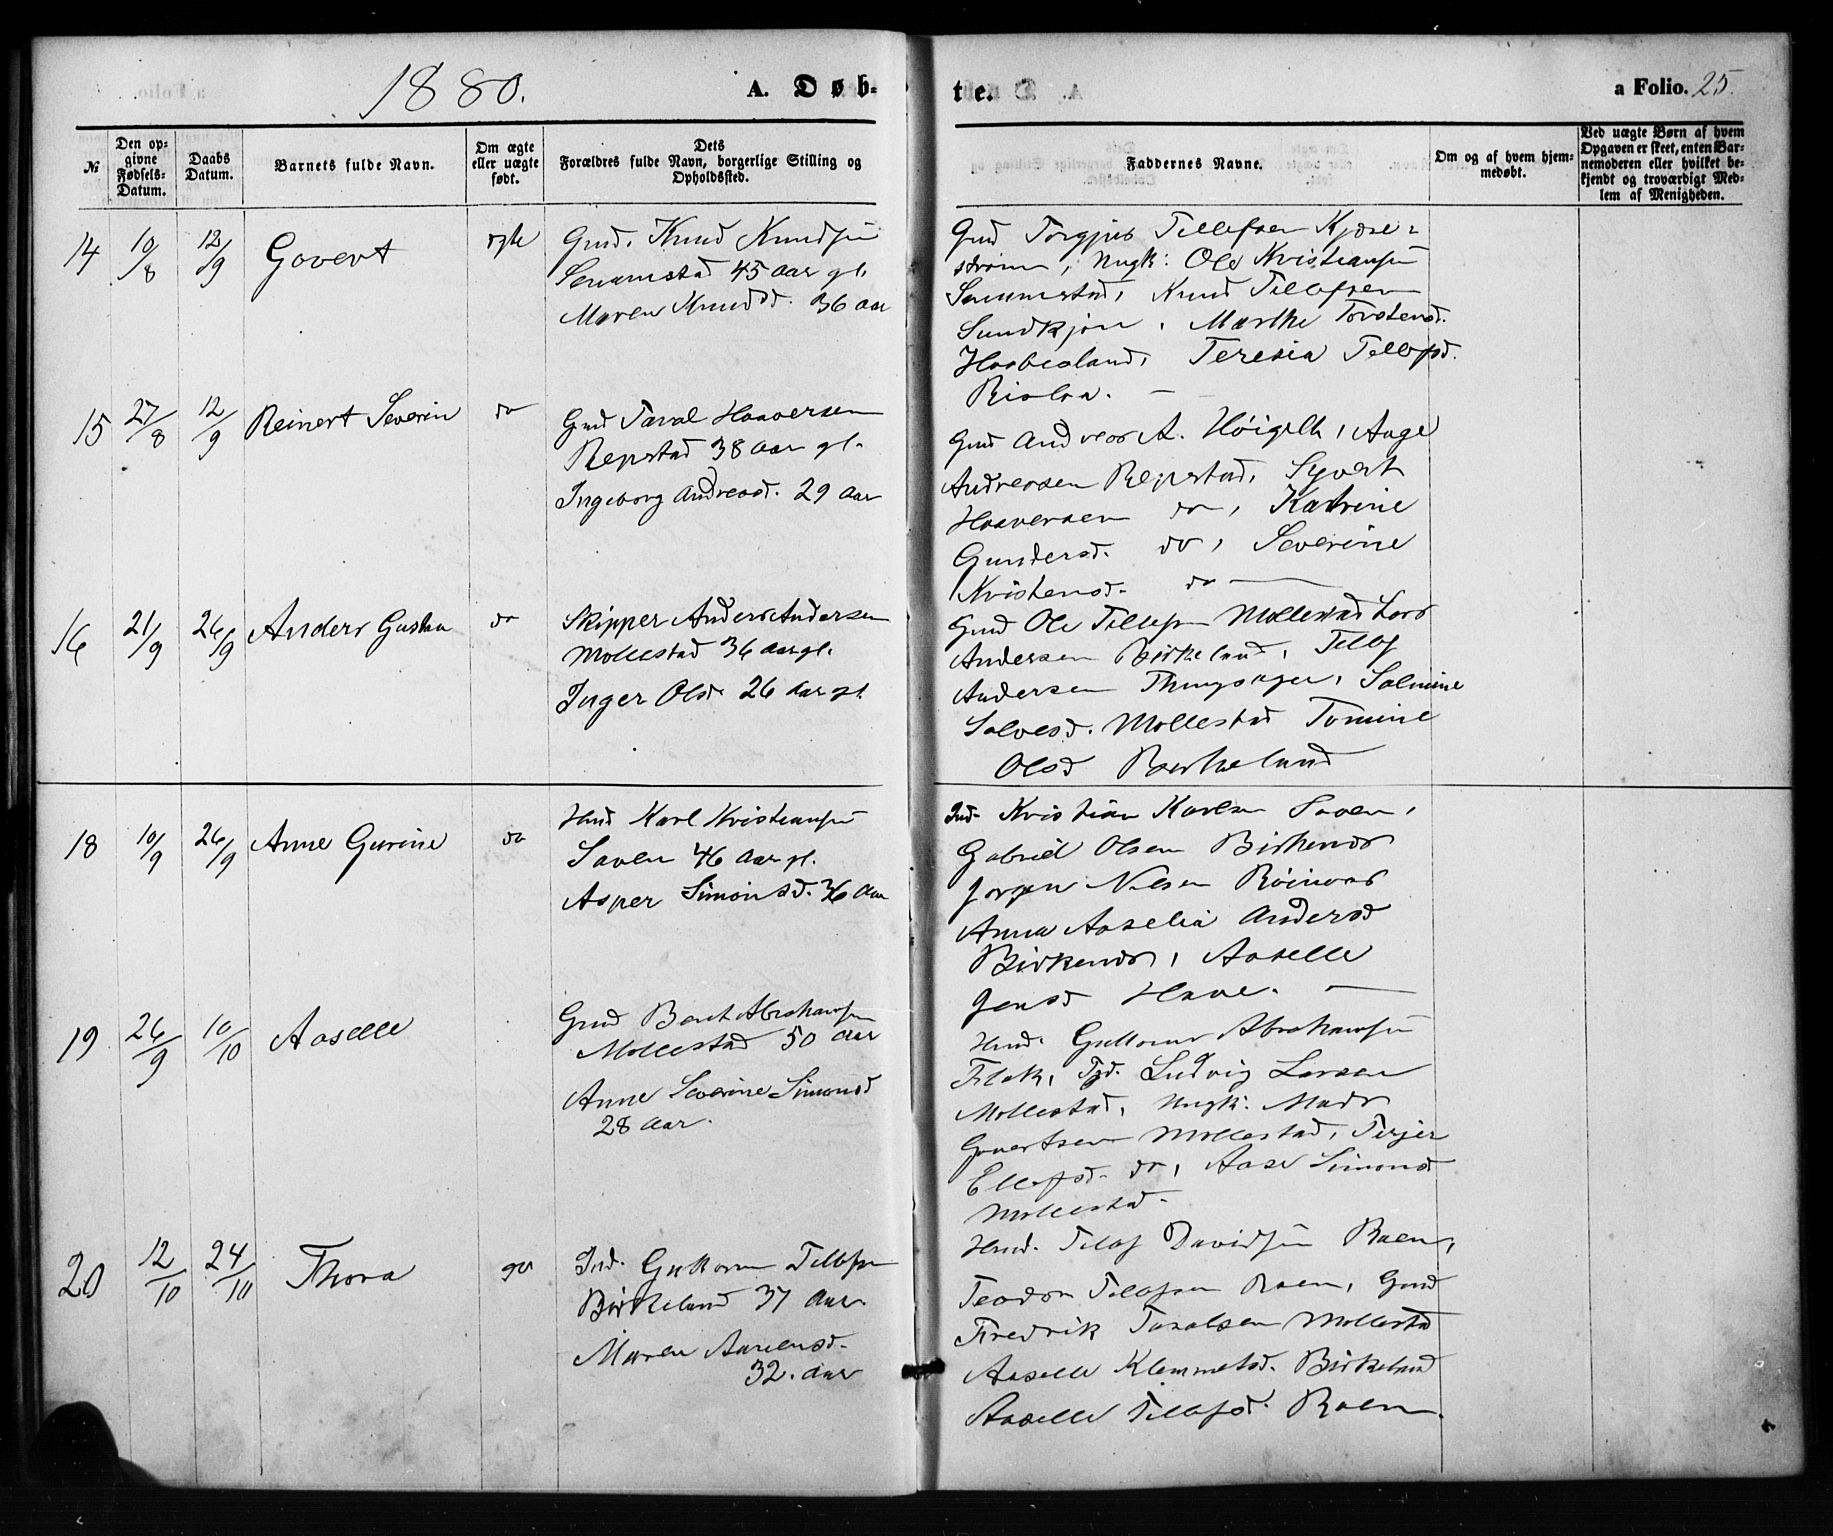 1880.
A. Døb-
te.
a Folio. 25.
№
Den op-
givne
Fødsels-
Datum.
Daabs
Datum.
Barnets fulde Navn.
Om ægte
eller uægte
født.
Dets
Forældres fulde Navn, borgerlige Stilling og
Opholdssted.
Faddernes Navne.
Om og af hvem hjem-
medøbt.
Ved uægte Børn af hvem
Opgaven er skeet, enten Bar-
nemoderen eller hvilket be-
kjendt og troværdigt Med-
lem af Menigheden.
14 10/8 12/9 Govert ægte
Gmd. Knud Knudsen
45 Aar gl.
Maren Knudsd. 36 Aar
Gmd Torgjus Tellefsen Kjose-
strøm, Ungk: Ole Kristiansen
Knud Tellefsen
Marthe Torstensd.
Haabesland, Teresia Tellefsd.
Rislaa.
15 27/8 12/9 Reinert Severin do
Gmd Taral Haaversen
Repstad 38 Aar gl.
Ingeborg Andreasd. 29 Aar
Gmd Andreas A. Høigilt, Aage
Andreasen Repstad, Syvert
Haaversen do, Katrine
Gundersd. do, Severine
Kristensd. do
16 21/9 26/9 Anders Gustav do
Skipper Anders Andersen
Mollestad 36 Aar gl.
Inger Olsd. 26 Aar gl.
Gmd Ole Tellefsen Mollestad Lars
Andersen Birkeland, Tellef
Andersen Salmine
Salvesd. Mollestad Tomine
Olsd Birkeland
18 10/9 26/9 Anne Gurine do
Hmd Karl Kristiansen
Saven 46 Aar gl.
Asper Simonsd. 36 Aar
Ind. Kristian Karlsen Saven,
Gabriel Olsen Birkenes
Jørgen Nilsen Røinaas
Anna Aaselia Andersd
Birkenes, Aaselle
Jensd Have.
19 26/9 10/10 Aaselle
Gmd Berit Abrahamsen
Mollestad 50 Aar
Anne Severine Simonsd
28 Aar.
Hmd. Guttorm Abrahamsen
Flak, Ludvig Larsen
Mollestad, Ungk: Mads
Govertsen Mollestad, Terjer
Ellefsd. do, Aase Simonsd
Mollestad.
20 12/10 24/10 Thora
Ind. Guttorm Tellefsen
Birkeland 37 Aar.
Maren Aanensd.
32. Aar
Hmd. Tellef Davidsen Raen,
Teodor Tellefsen Raen, Gmd
Fredrik Taralsen Mollestad
Aaselle Klemmetsd. Birkeland
Aaselle Tellefsd. Raen.